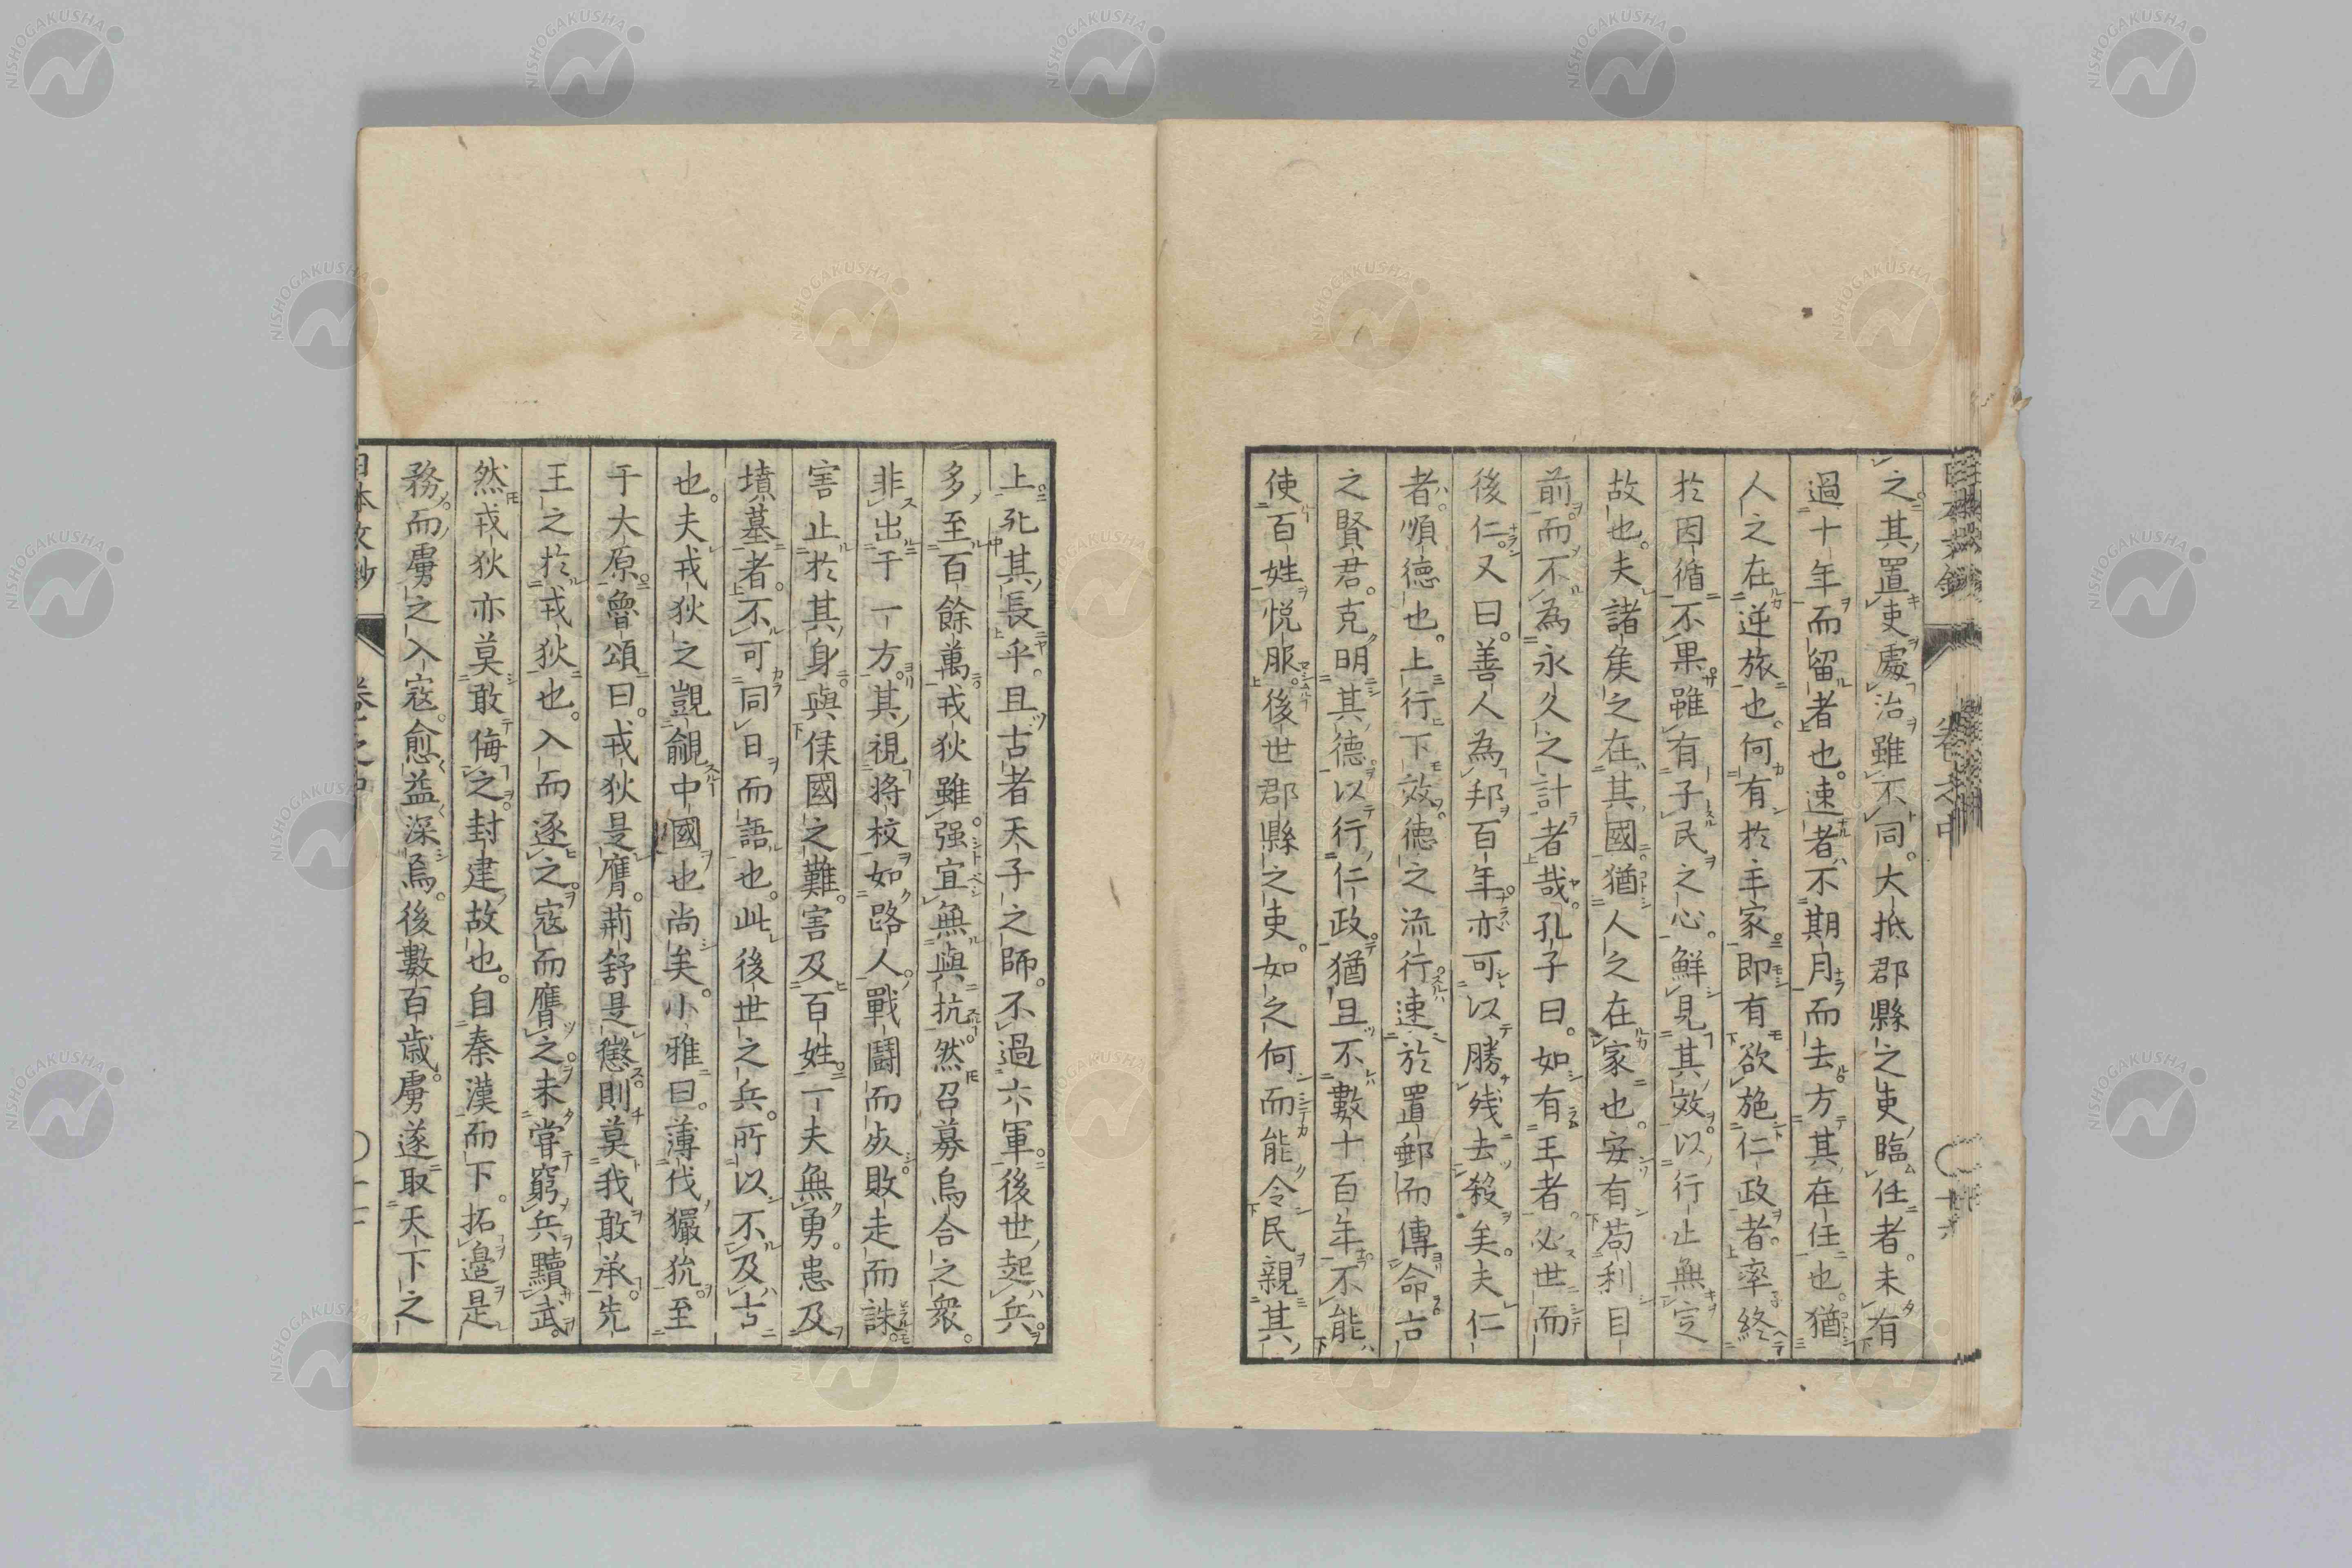 之其置吏處治雖不同。大抵郡縣之吏臨任者。未有
過十年而留者也。速者不期月而去方其在任也。猶
人之在逆旅也。何有於主家。即有欲施仁政者。率終
於因循不果雖有子民之心。鮮見其效。以行止無定
故也。夫諸矦之在其國。猶人之在家也。安有苟利目
前而不為永久之計者哉。孔子曰。如有王者必世而
後仁。又曰。善人為邦百年。亦可以勝残去殺矣。夫仁
者。順德也。上行下效。德之流行。速於置郵而傳命古
之賢君。克明其德。以行仁政。猶且不數十百年。不能
使百姓悅服。後世郡縣之吏。如之何而能令民親其
上死其長乎。且古者天子之師。不過六軍。後世起兵。
多至百餘萬。戎狄雖强。宜無與抗。然召募烏合之衆。
非出于一方。其視將校如路人。戰鬪而敗敗走而誅
害止於其身。與僕國之難。害及百姓。一夫無勇。患及
墳墓者。不可同日而語也。此後世之兵。所以不及古
也。夫戎狄之覬覦中國也尚矣。小雅曰。薄伐玁狁。至
于大原。魯頌曰。戎狄是膺。荊舒是懲。則莫我敢承。先
王之於戎狄也。入而逐之。寇而膺之。未嘗窮兵黷武。
然戎狄亦莫敢侮之。封建故也。自秦漢而下。拓邊是
務。而虜之入寇。愈益深焉。後數百歲。虜遂取天下之